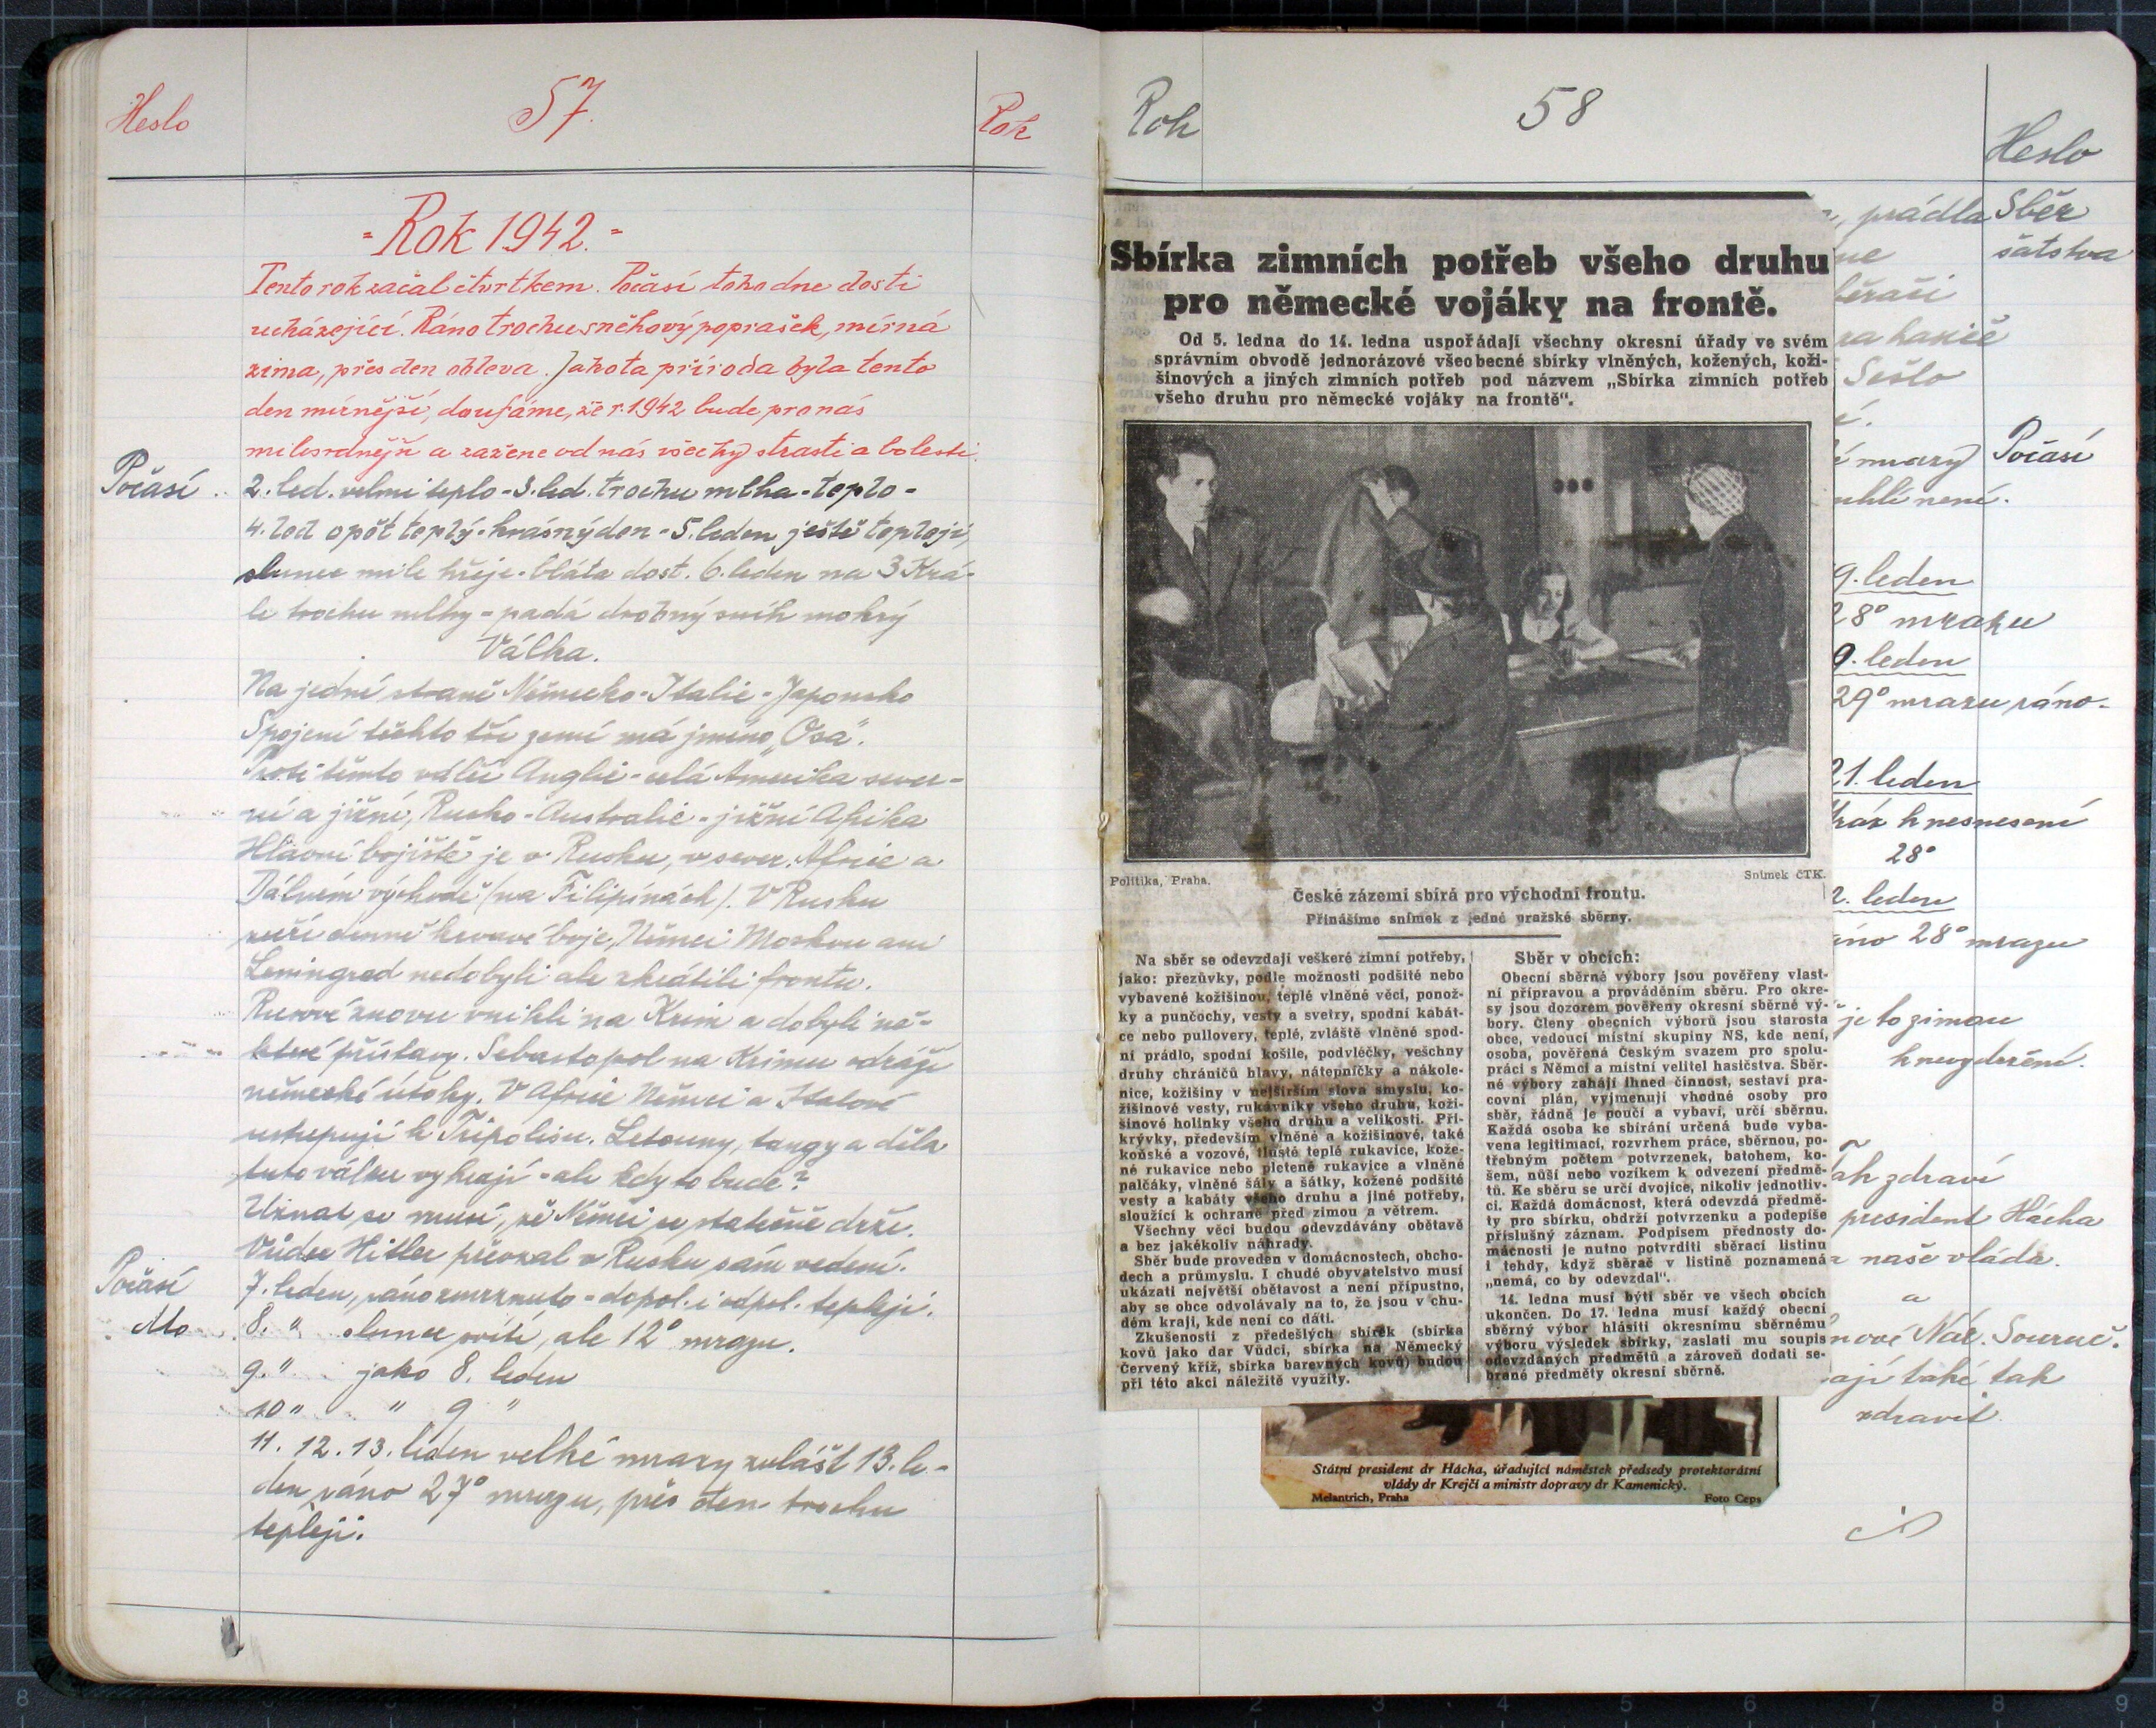 Heslo
57.
Rok
= Rok 1942. =
Tento rok začal čtvrtkem. Počasí toho dne dosti
ucházející. Ráno trochu sněhový poprašek, mírná
zima, přes den obleva. Jakota příroda byla tento
den mírnější, doufáme, že r. 1942 bude pro nás
milosrdnější a zažene od nás všechy strasti a bolesti.
Počasí
2. led. velmi teplo - 3. led. trochu mlha - teplo -
4. led opět teplý - krásný den - 5. leden ještě tepleji,
slunce mile hřeje - bláta dost. 6. leden na 3 Krá-
le trochu mlhy - padá drobný sníh mokrý
Válka.
Na jedné straně Německo - Italie - Japonsko
Spojení těchto tří zemí má jméno „Osa".
Proti těmto válčí Anglie - celá Amerika sever-
ní a jižní, Rusko - Australie - jižní Afrika
Hlavní bojiště je v Rusku, v sever. Africe a
Dálném východě (na Filipínách). V Rusku
zuří denně krvavé boje, Němci Moskvu ani
Leningrad nedobyli ale zkrátili frontu.
Rusové znovu vnikli na Krim a dobyli ně-
které přístavy. Sebastopol na Krimu odráží
německé útoky. V Africe Němci a Italové
ustupují k Tripolisu. Letouny, tangy a děla
tuto válku vyhrají - ale kdy to bude?
Uznat se musí, že Němci se statečně drží.
Vůdce Hitler převzal v Rusku sám vedení.
Počasí
7. leden, ráno zmrznuto - dopol. i odpol. tepleji.
8. " slunce svítí, ale 12° mrazu.
9. " jako 8. leden
10 " " 9 "
11. 12. 13. leden velké mrazy zvlášť 13. le-
den ráno 27° mrazu, přes den trochu
tepleji.
Rok
58
Heslo
Sbírka zimních potřeb všeho druhu
pro německé vojáky na frontě.
Od 5. ledna do 14. ledna uspořádají všechny okresní úřady ve svém
správním obvodě jednorázové všeobecné sbírky vlněných, kožených, koži-
šinových a jiných zimních potřeb pod názvem „Sbírka zimních potřeb
všeho druhu pro německé vojáky na frontě".
Politika, Praha.
Snímek ČTK.
České zázemí sbírá pro východní frontu.
Přinášíme snímek z jedné pražské sběrny.
Na sběr se odevzdají veškeré zimní potřeby,
jako: přezůvky, podle možnosti podšité nebo
vybavené kožišinou, teplé vlněné věci, ponož-
ky a punčochy, vesty a svetry, spodní kabát-
ce nebo pullovery, teplé, zvláště vlněné spod-
ní prádlo, spodní košile, podvléčky, vešchny
druhy chráničů hlavy, nátepníčky a nákole-
nice, kožišiny v nejširším slova smyslu, ko-
žišinové vesty, rukávníky všeho druhu, koži-
šinové holinky všeho druhu a velikosti. Při-
krývky, především vlněné a kožišinové, také
koňské a vozové, tlusté teplé rukavice, kože-
né rukavice nebo pletené rukavice a vlněné
palčáky, vlněné šály a šátky, kožené podšité
vesty a kabáty všeho druhu a jiné potřeby,
sloužící k ochraně před zimou a větrem.
Všechny věci budou odevzdávány obětavě
a bez jakékoliv náhrady.
Sběr bude proveden v domácnostech, obcho-
dech a průmyslu. I chudé obyvatelstvo musí
ukázati největší obětavost a není přípustno,
aby se obce odvolávaly na to, že jsou v chu-
dém kraji, kde není co dáti.
Zkušenosti z předešlých sbírek (sbírka
kovů jako dar Vůdci, sbírka na Německý
červený kříž, sbírka barevných kovů) budou
při této akci náležitě využity.
Sběr v obcích:
Obecní sběrné výbory jsou pověřeny vlast-
ní přípravou a prováděním sběru. Pro okre-
sy jsou dozorem pověřeny okresní sběrné vý-
bory. Členy obecních výborů jsou starosta
obce, vedoucí místní skupiny NS, kde není,
osoba, pověřená Českým svazem pro spolu-
práci s Němci a místní velitel hasičstva. Sběr-
né výbory zahájí ihned činnost, sestaví pra-
covní plán, vyjmenují vhodné osoby pro
sběr, řádně je poučí a vybaví, určí sběrnu.
Každá osoba ke sbírání určená bude vyba-
vena legitimací, rozvrhem práce, sběrnou, po-
třebným počtem potvrzenek, batohem, ko-
šem, nůší nebo vozíkem k odvezení předmě-
tů. Ke sběru se určí dvojice, nikoliv jednotliv-
ci. Každá domácnost, která odevzdá předmě-
ty pro sbírku, obdrží potvrzenku a podepíše
příslušný záznam. Podpisem přednosty do-
mácnosti je nutno potvrditi sběrací listinu
i tehdy, když sběrač v listině poznamená
„nemá, co by odevzdal".
14. ledna musí býti sběr ve všech obcích
ukončen. Do 17. ledna musí každý obecní
sběrný výbor hlásiti okresnímu sběrnému
výboru výsledek sbírky, zaslati mu soupis
odevzdaných předmětů a zároveň dodati se-
brané předměty okresní sběrně.
Státní president dr Hácha, úřadující náměstek předsedy protektorátní
vlády dr Krejčí a ministr dopravy dr Kamenický.
Melantrich, Praha
Foto Ceps
, prádla
Sběr
šatstva
za hasiče
Sešlo
mrazy
Počasí
uhlí není.
9. leden
28° mrazu
9. leden
29° mrazu ráno.
21. leden
mráz k nesnesení
28°
2. leden
ráno 28° mrazu
je to zimou
k nevydržení.
Tak zdraví
president Hácha
a naše vláda.
a
nové Nár. Souruč.
ají také tak
zdravit